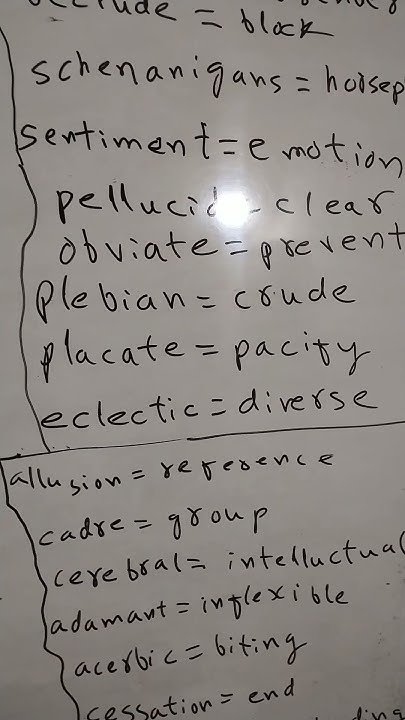 = block
schenanigans = horsep
sentiment = emotion
pellucid = clear
obviate = prevent
plebian = crude
placate = pacify
eclectic = diverse
allusion = reference
cadre = group
cerebral = intelluctual
adamant = inflexible
acerbic = biting
cessation = end
ding